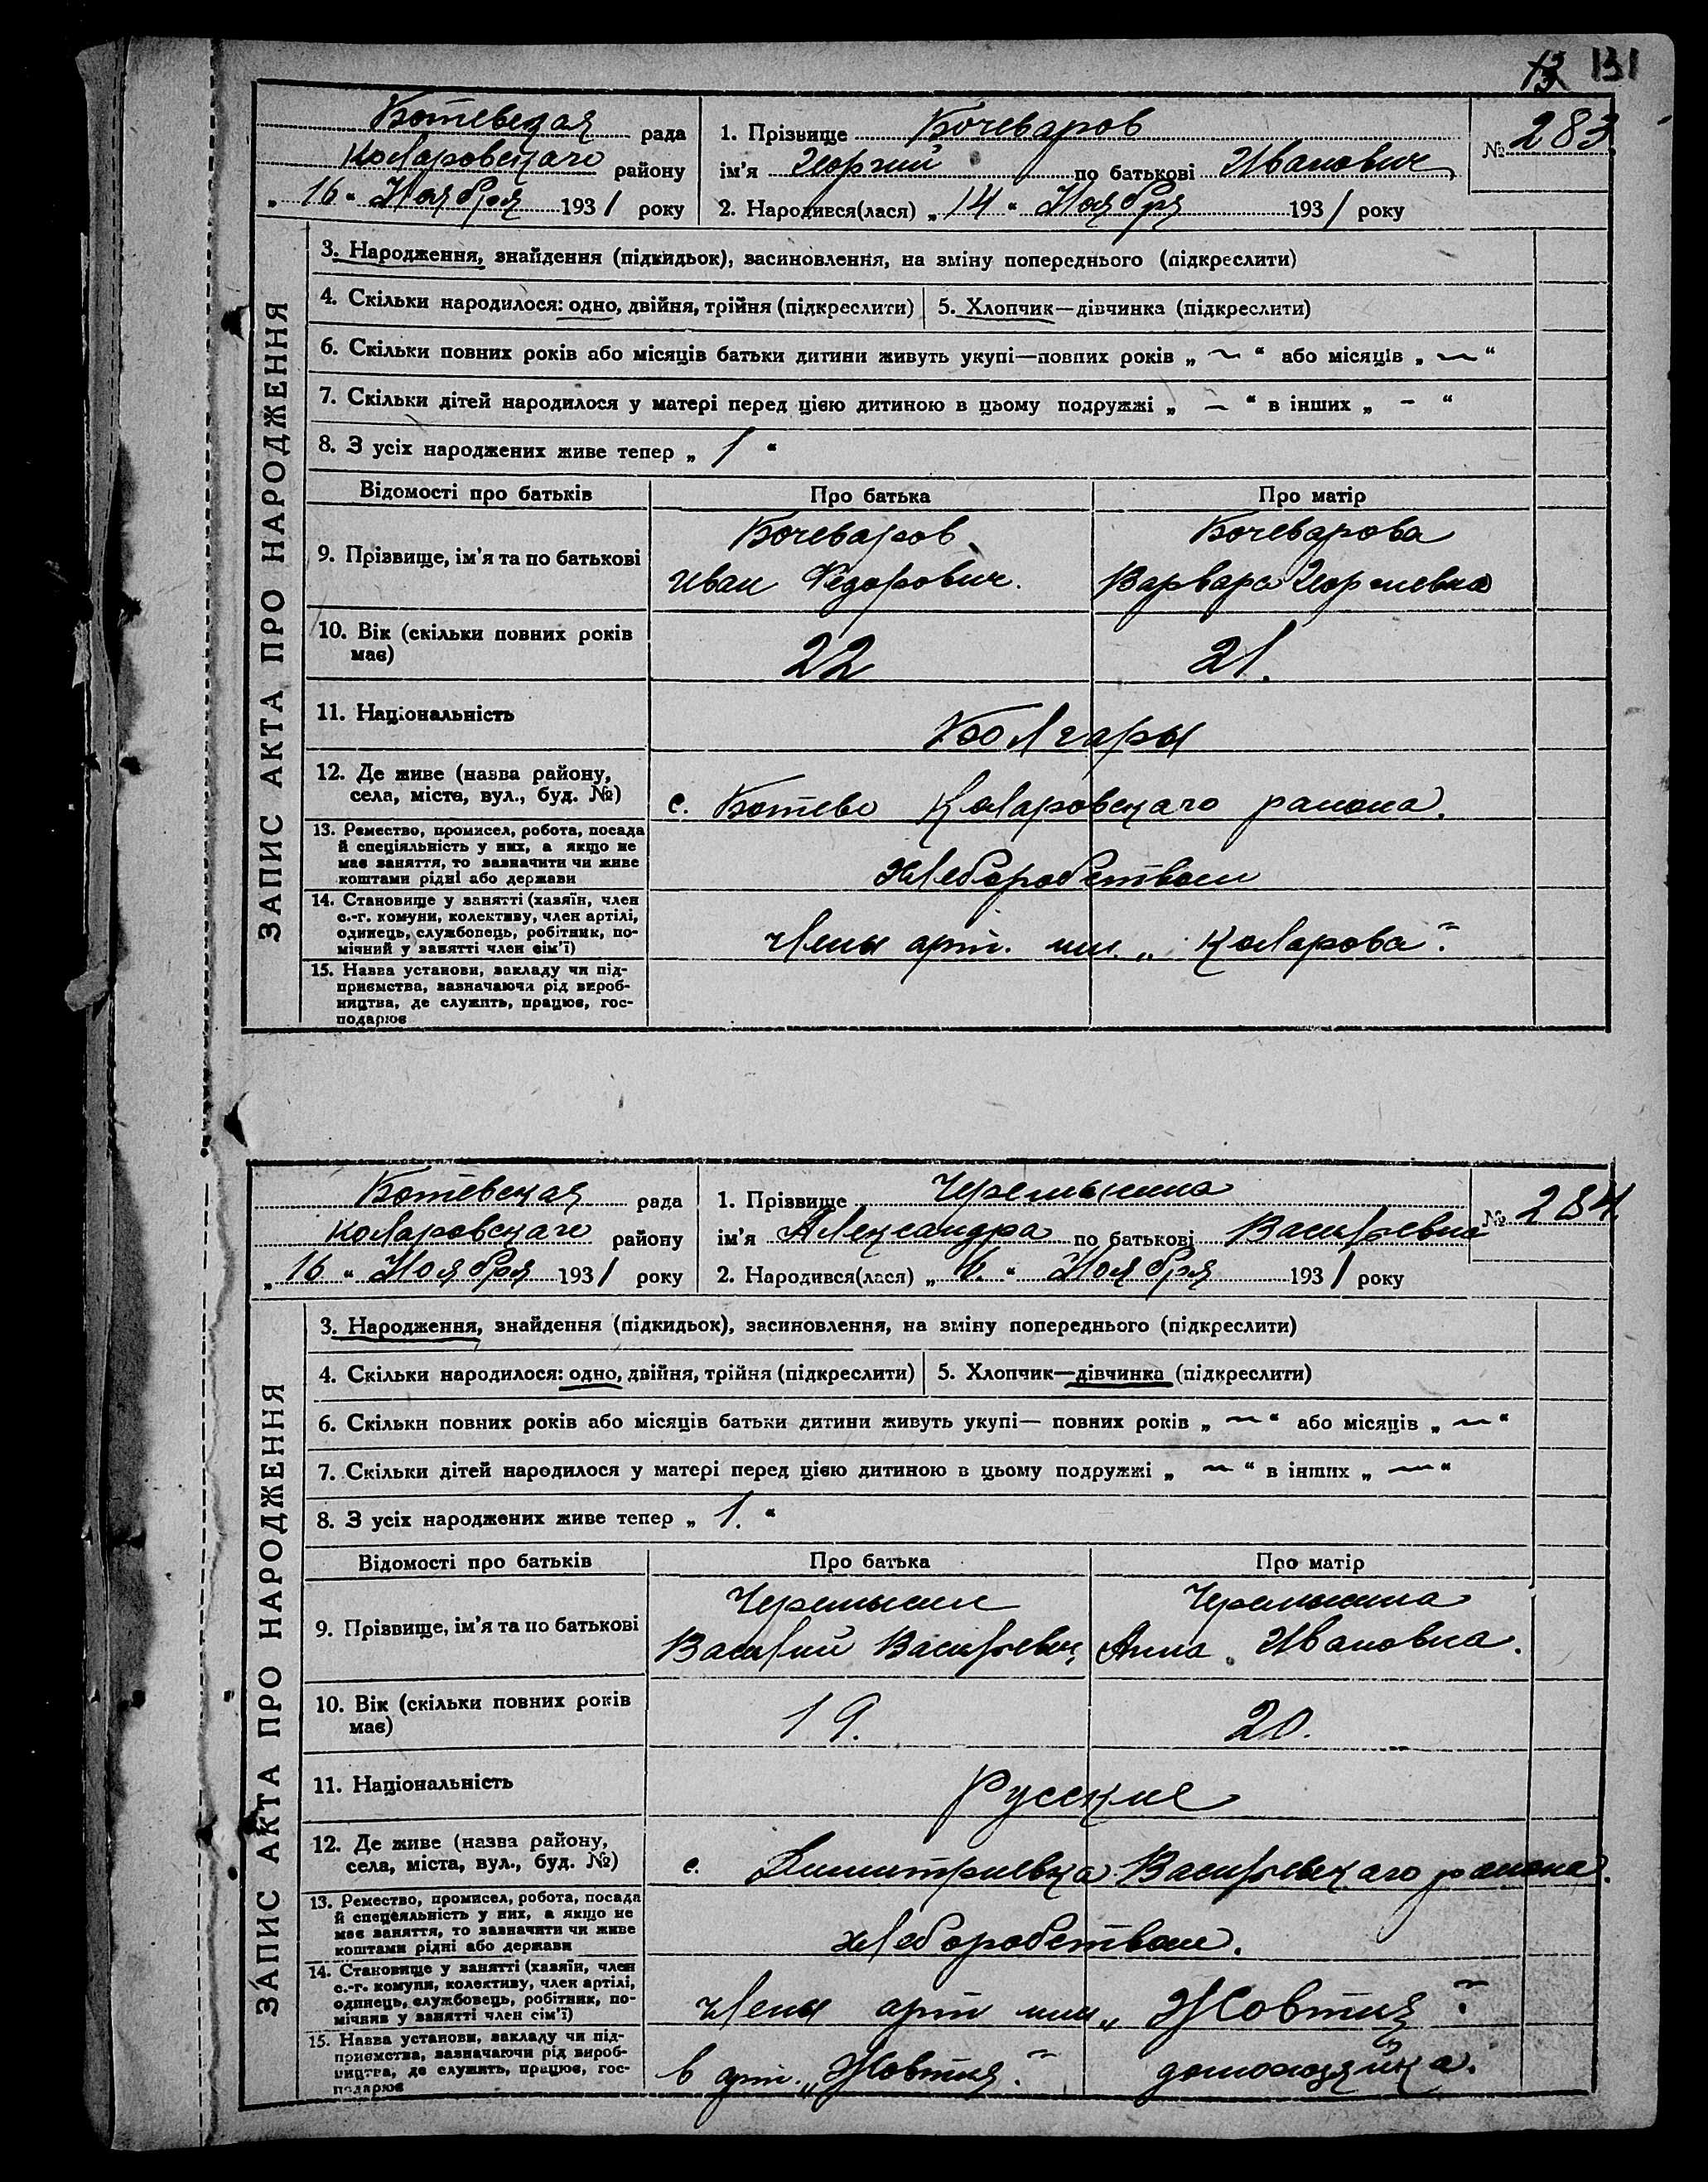 131
Ботевская рада
Коларовскаго району
„ 16 “ Ноября 1931 року
1. Прізвище Бочеваров
ім'я Георгий по батькові Иванович
2. Народився(лася) „ 14 “ Ноября 1931 року
№ 283.
ЗАПИС АКТА ПРО НАРОДЖЕННЯ
3. Народження, знайдення (підкидьок), васиновлення, на зміну попереднього (підкреслити)
4. Скільки народилося: одно, двійня, трійня (підкреслити)
5. Хлопчик—дівчинка (підкреслити)
6. Скільки повних років або місяців батьки дитини живуть укупі—повних років „ — “ або місяців „ — “
7. Скільки дітей народилося у матері перед цією дитиною в цьому подружжі „ — “ в інших „ - “
8. З усіх народжених живе тепер „ 1 “
Відомості про батьків Про батька Про матір
9. Прізвище, ім'я та по батькові
Бочеваров
Иван Федорович.
Бочеварова
Варвара Георгиевна
10. Вік (скільки повних років
має)
22 21.
11. Національність
Болгары
12. Де живе (назва району,
села, міста, вул., буд. №)
с. Ботево Коларовскаго района.
13. Ремество, промисел, робота, посада
й спеціяльність у них, а якщо не
має заняття, то зазначити чи живе
коштами рідні або держави
хлеборобством
14. Становище у занятті (хазяїн, член
с.-г. комуни, колективу, член артілі,
одинець, службовець, робітник, по-
мічний у занятті член сім'ї)
члены арт. им. „Коларова“.
15. Назва установи, закладу чи під-
приємства, зазначаючи рід вироб-
ництва, де служить, працює, гос-
подарює
Ботевская рада
Коларовскаго району
„ 16 “ Ноября 1931 року
1. Прізвище Черемысина
ім'я Александра по батькові Васильевна
2. Народився(лася) „ “ Ноября 1931 року
№ 284.
ЗАПИС АКТА ПРО НАРОДЖЕННЯ
3. Народження, знайдення (підкидьок), засиновлення, на зміну попереднього (підкреслити)
4. Скільки народилося: одно, двійня, трійня (підкреслити)
5. Хлопчик—дівчинка (підкреслити)
6. Скільки повних років або місяців батьки дитини живуть укупі— повних років „ — “ або місяців „ — “
7. Скільки дітей народилося у матері перед цією дитиною в цьому подружжі „ — “ в інших „ — “
8. З усіх народжених живе тепер „ 1. “
Відомості про батьків Про батька Про матір
9. Прізвище, ім'я та по батькові
Черемысин
Василий Васильевич
Черемысина
Анна Ивановна.
10. Вік (скільки повних років
має)
19. 20.
11. Національність
Русские
12. Де живе (назва району,
села, міста, вул., буд. №)
с. Димитриевка Васильевскаго района.
13. Ремество, промисел, робота, посада
й спецеяльність у них, а якщо не
має заняття, то зазначити чи живе
коштами рідні або держави
хлеборобством.
14. Становище у занятті (хазяїн, член
с.-г. комуни, колективу, член артілі,
одинець, службовець, робітник, по-
мічний у занятті член сім'ї)
члены арт им „Жовтня“.
15. Назва установи, закладу чи під-
приємства, зазначаючи рід вироб-
ництва, де служить, працює, гос-
подарює
в арт. „Жовтня“. домохозяйка.